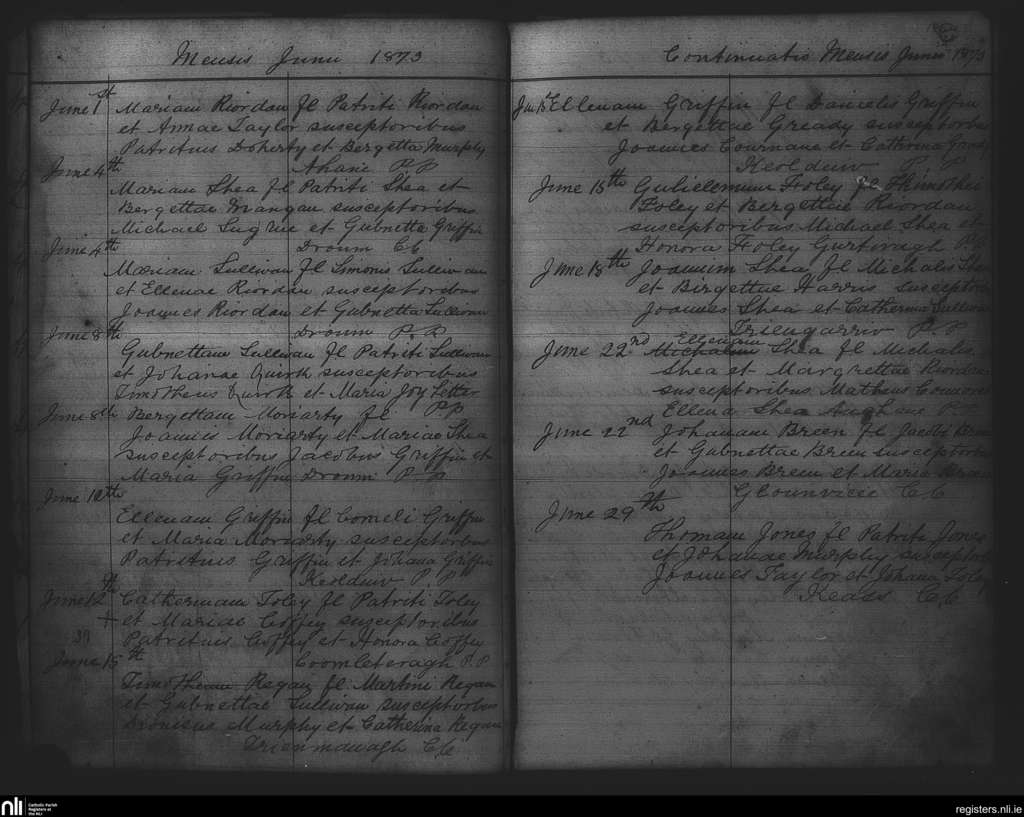 Mensis Junii 1873
June 1st Mariam Riordan fl Patriti Riordan
et Annae Taylor susceptoribus
Patritius Doherty et Bergetta Murphy
Ahane P.P
June 4th
Mariam Shea fl Patriti Shea et
Bergettae Mangan susceptoribus
Michael Sugrue et Gubnetta Griffin
Droum CC
June 4th
Mariam Sullivan fl Simonis Sullivan
et Ellenae Riordan susceptoribus
Joannes Riordan et Gubnetta Sullivan
Droum P.P.
June 8th
Gubnettam Sullivan fl Patriti Sullivan
et Johanae Quirk susceptoribus
Timotheus Quirk et Maria Joy Letter
PP
June 8th Bergettam Moriarty fl
Joannis Moriarty et Mariae Shea
susceptoribus Jacobus Griffin et
Maria Griffin Droum P.P
June 10th
Ellenam Griffin fl Corneli Griffin
et Maria Moriarty susceptoribus
Patritius Griffin et Johana Griffin
Keolduv P P
June 12th Catherinam Foley fl Patriti Foley
+ et Mariae Coffey susceptoribus
Patritius Coffey et Honora Coffey
June 15th Coomleteragh P.P
Timotheum Regan fl Martini Regan
et Gubnettae Sullivan susceptoribus
Dionisius Murphy et Catherina Regan
CC
Continuatio Mensis Junii 1873
Jun 15 Ellenam Griffin fl Danielis Griffin
et Bergettae Gready susceptoribus
Joannes Cournane et Catherina
Keolduv P P
June 15th Gulielemum Foley fl Thimothei
Foley et Bergettae Riordan
susceptoribus Michael Shea et
Honora Foley
June 18th Joannim Shea fl Michalis Shea
et Birgettae Harris
Joannes Shea et Catherina Sullivan
P.P
Ellenam
June 22nd Michalim Shea fl Michalis
Shea et Margrettae Riordan
susceptoribus Matheus
Ellena Shea P.
June 22nd Johanam Breen fl Jacobi Breen
et Gubnettae Breen susceptoribus
Joannes Breen et Maria Breen
CC
June 29th
Thomam Jones fl Patriti Jones
et Johanae Murphy
Joannes Taylor et Johana Foley
Keas CC
nli Catholic Parish
Registers at
the NLI
registers.nli.ie